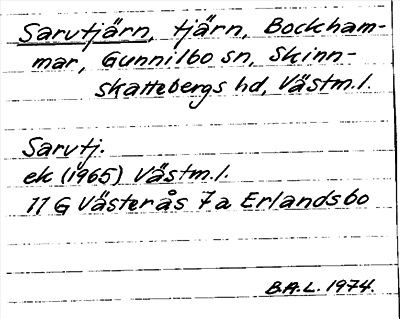 Sarvtjärn, tjärn, Bockham-
mar, Gunnilbo sn, Skinn-
skattebergs hd, Västm.l.
Sarvtj.
ek (1965) Västm.l.
11 G Västerås 7a Erlandsbo
B.A.L. 1974.